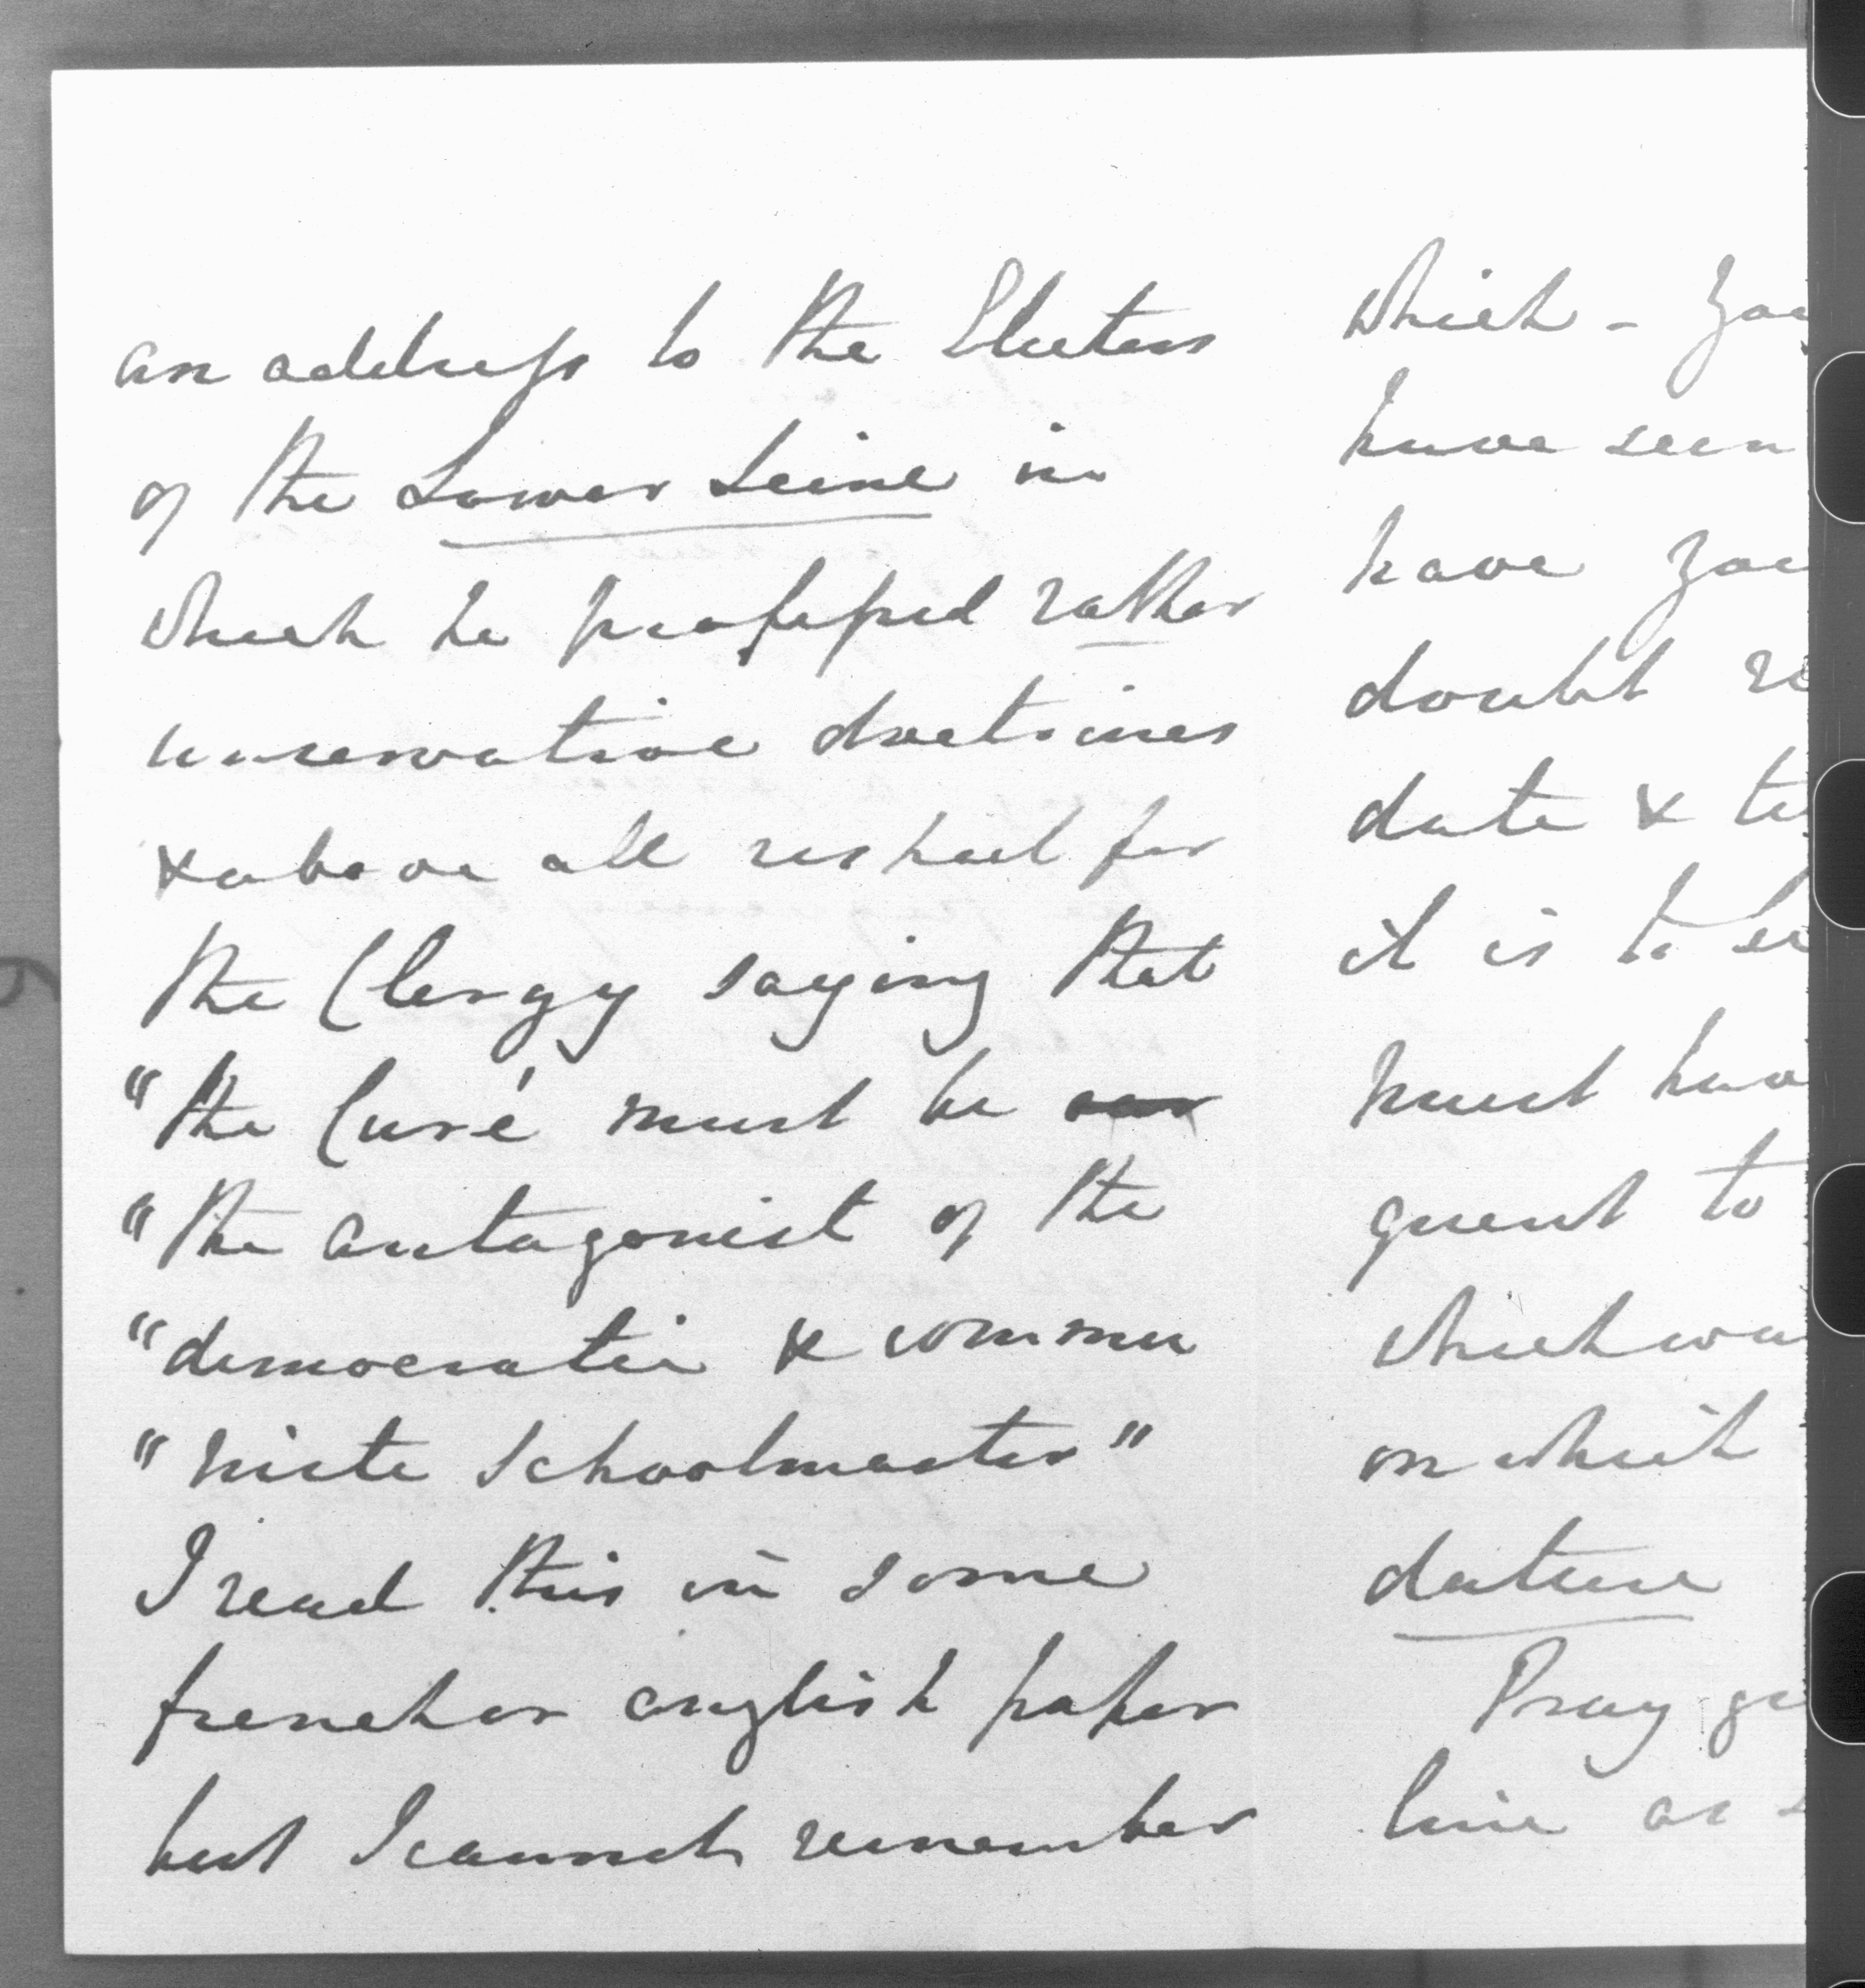 an address to the Electors
of the Lower Seine in
which he professed rather
conservative doctrines
& above all respect for
the Clergy saying that
"the Curé must be
"the antagonist of the
"democratic & commu
"niste Schoolmaster"
I read this in some
french or english paper
but I cannot remember
which - You
have seen
have you
doubt re
date & te
it is to be
must hav
quent to
which wa
on which
dature
Pray gi
line as s